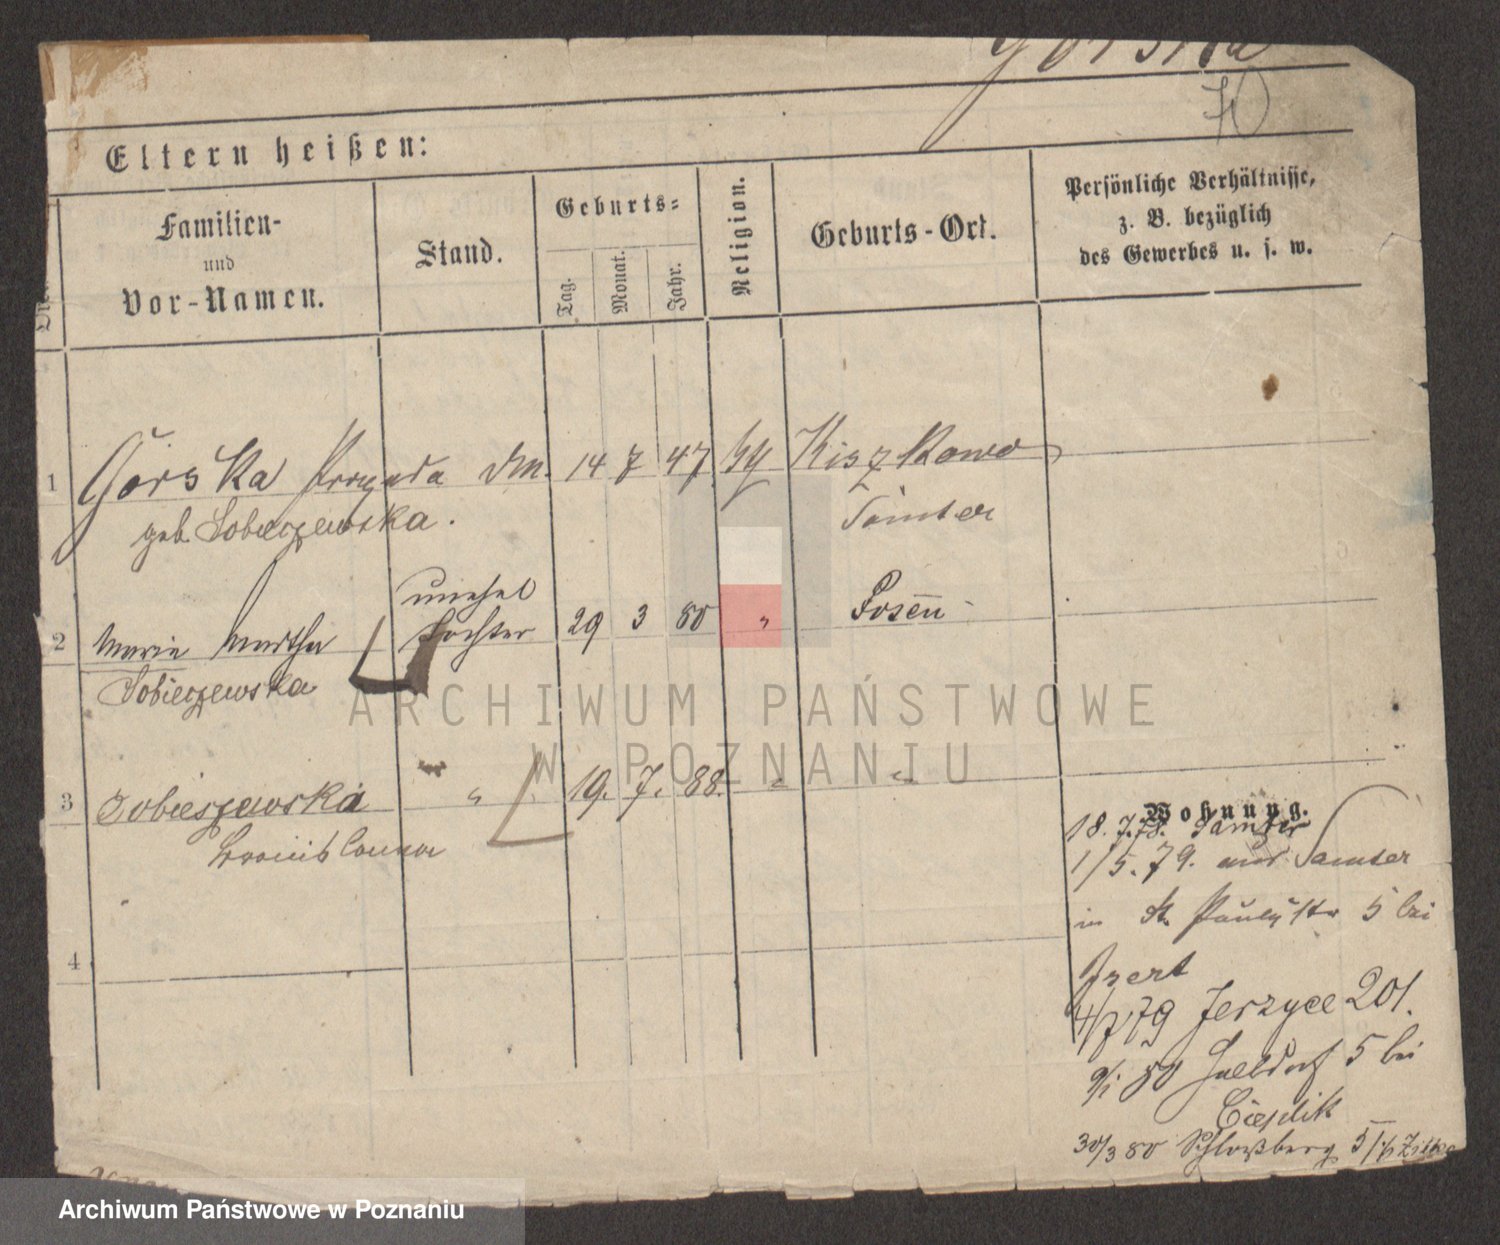 Górska
Eltern heißen:
Nr.
Familien-
und
Vor-Namen.
Stand.
Geburts-
Tag.
Monat.
Jahr.
Religion.
Geburts-Ort.
Persönliche Verhältnisse,
z. B. bezüglich
des Gewerbes u. s. w.
1 Górska 14 7 47 Kiszkowo
geb. Sobieszewska. Samter
unehel
2 Maria Martha Tochter 29 3 80 " Posen
Sobieszewska
3 Sobieszewska " 19. 7. 88. " "
4
Wohnung.
18. 7. 78. Samter
1/5. 79. aus Samter
in St. Paulistr 5 bei
4/7 79 Jerzyce 201.
9/1 80 5 bei
Cieplik
30/3 80 Schloßberg 5
ARCHIWUM PAŃSTWOWE
W POZNANIU
Archiwum Państwowe w Poznaniu